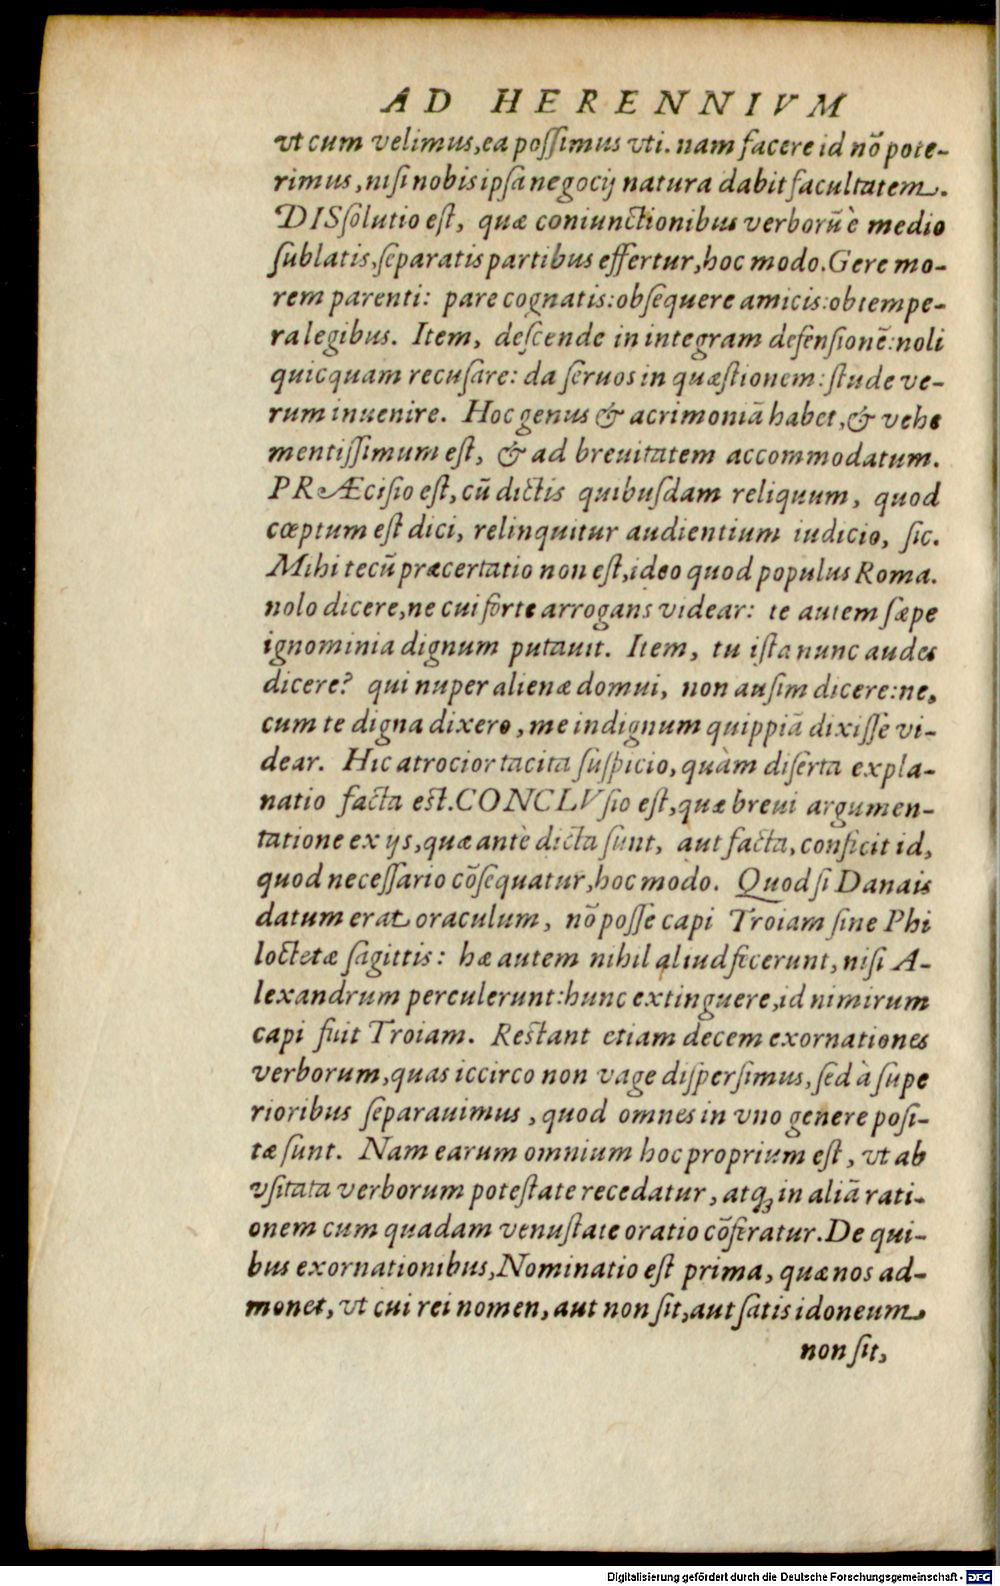 AD HERENNIVM
vt cum velimus, ea possimus vti. nam facere id nõ pote-
rimus, nisi nobis ipsa negocij natura dabit facultatem.
DISsolutio est, quæ coniunctionibus verborũ è medio
sublatis, separatis partibus effertur, hoc modo. Gere mo-
rem parenti: pare cognatis: obsequere amicis: obtempe-
ra legibus. Item, descende in integram defensionẽ: noli
quicquam recusare: da seruos in quæstionem: stude ve-
rum inuenire. Hoc genus & acrimoniã habet, & vehe
mentissimum est, & ad breuitatem accommodatum.
PRÆcisio est, cũ dictis quibusdam reliquum, quod
cœptum est dici, relinquitur audientium iudicio, sic.
Mihi tecũ præcertatio non est, ideo quod populus Roma.
nolo dicere, ne cui forte arrogans videar: te autem sæpe
ignominia dignum putauit. Item, tu ista nunc audes
dicere? qui nuper alienæ domui, non ausim dicere: ne,
cum te digna dixero, me indignum quippiã dixisse vi-
dear. Hic atrocior tacita suspicio, quàm diserta expla-
natio facta est. CONCLVsio est, quæ breui argumen-
tatione ex ijs, quæ antè dicta sunt, aut facta, conficit id,
quod necessario cõsequatur, hoc modo. Quod si Danais
datum erat oraculum, nõ posse capi Troiam sine Phi
loctetæ sagittis: hæ autem nihil aliud fecerunt, nisi A-
lexandrum perculerunt: hunc extinguere, id nimirum
capi fuit Troiam. Restant etiam decem exornationes
verborum, quas iccirco non vage dispersimus, sed à supe
rioribus separauimus, quod omnes in vno genere posi-
tæ sunt. Nam earum omnium hoc proprium est, vt ab
vsitata verborum potestate recedatur, atq; in aliã rati-
onem cum quadam venustate oratio cõferatur. De qui-
bus exornationibus, Nominatio est prima, quæ nos ad-
monet, vt cui rei nomen, aut non sit, aut satis idoneum
non sit,
Digitalisierung gefördert durch die Deutsche Forschungsgemeinschaft - DFG